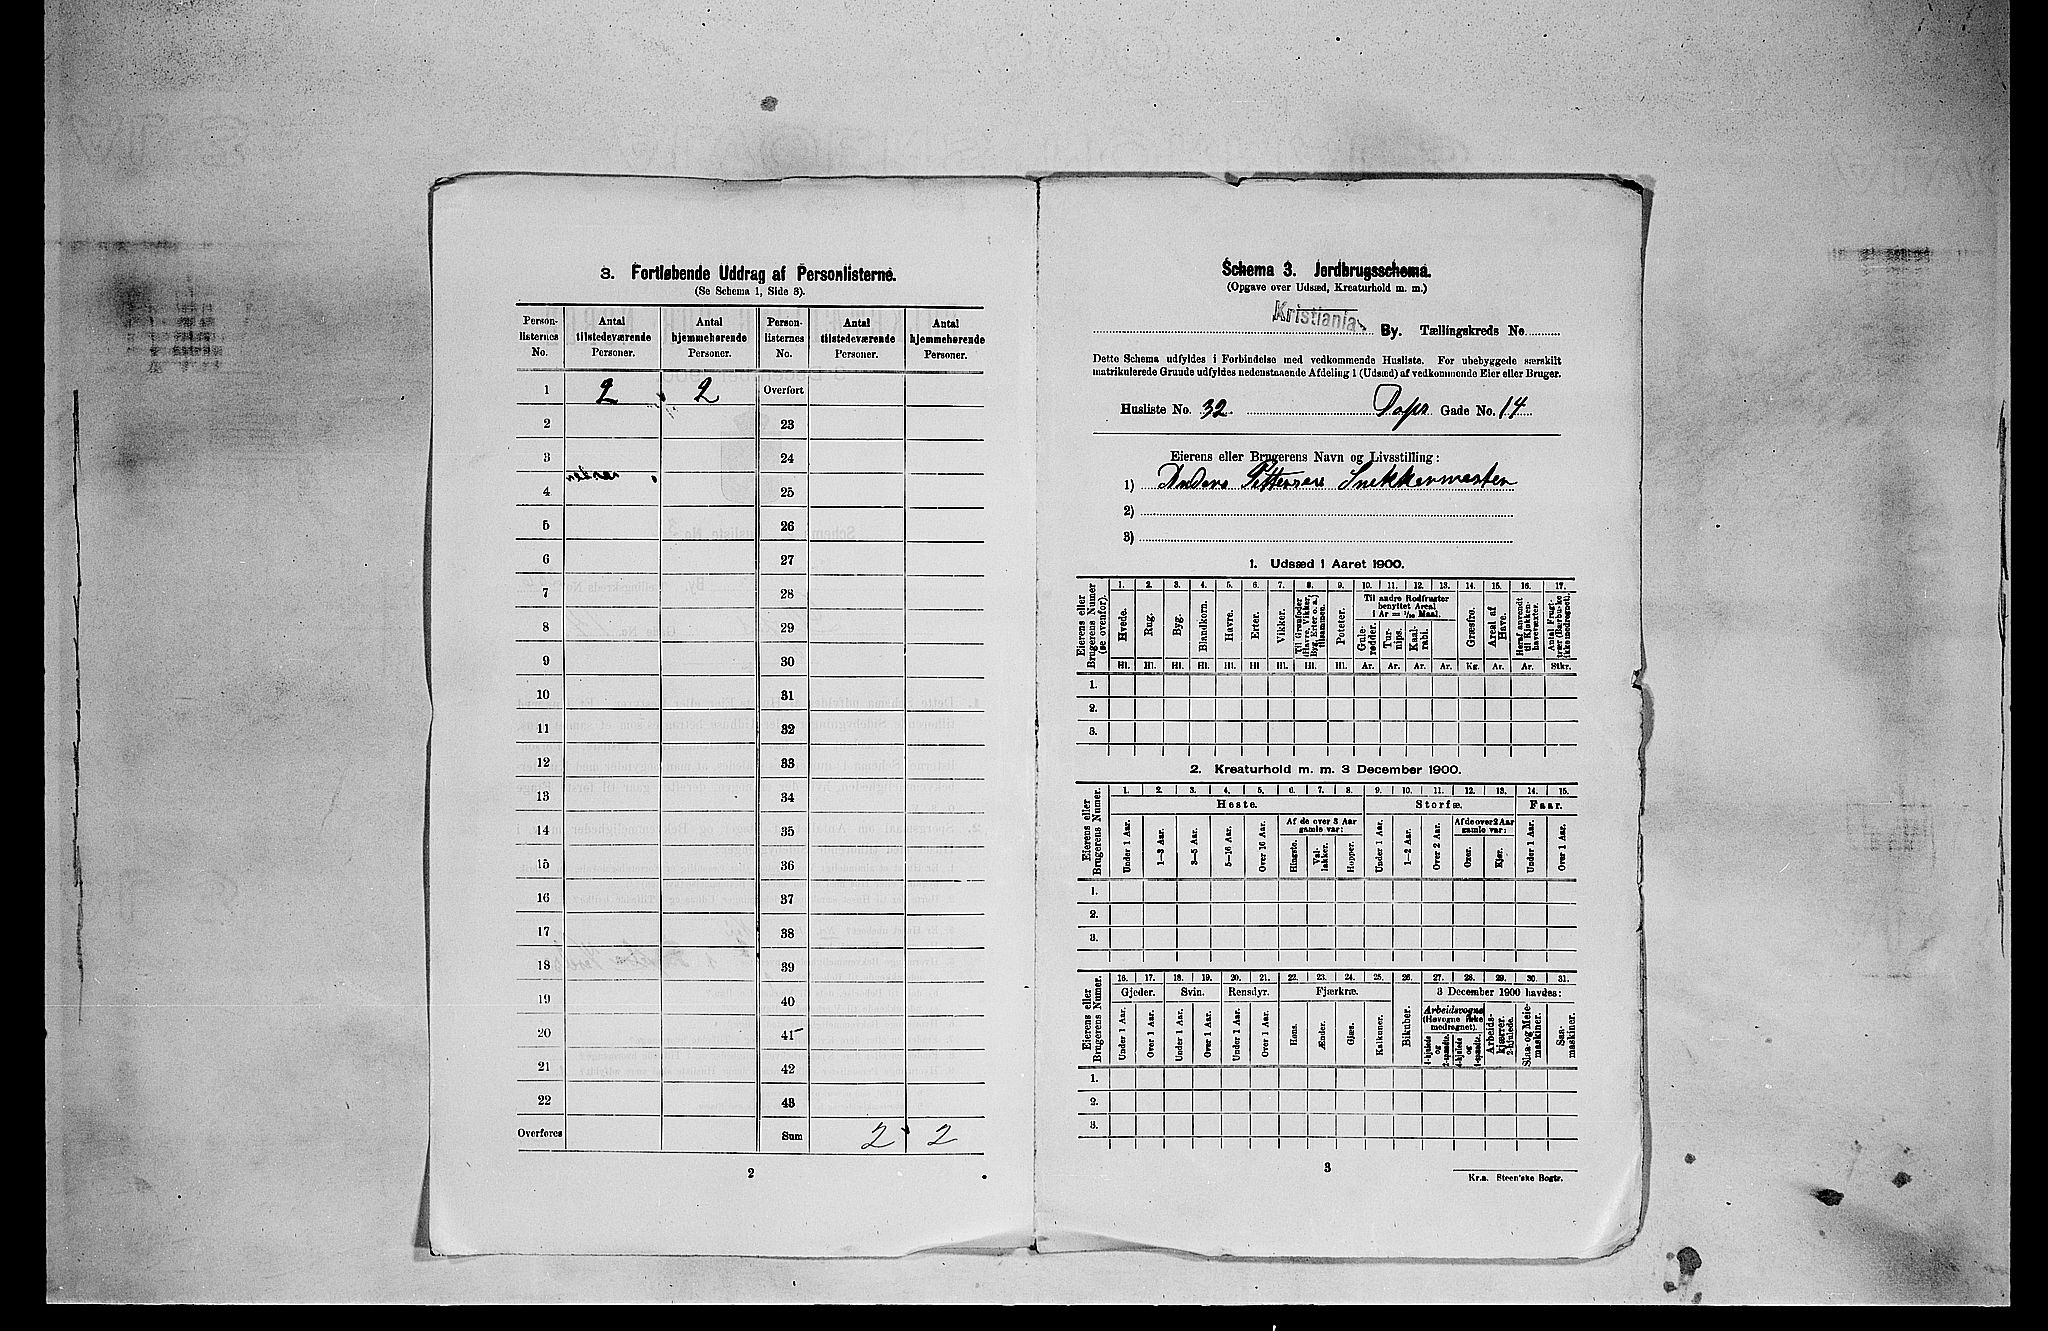 3. Fortløbende Uddrag af Personlisterne.
(Se Schema 1, Side 3).
Person-listernes No. Antal tilstedeværende Personer. Antal hjemmehørende Personer. Person-listernes No. Antal tilstedeværende Personer. Antal hjemmehørende Personer.
1 2 2 Overført
2 23
3 24
4 25
5 26
6 27
7 28
8 29
9 30
10 31
11 32
12 33
13 34
14 35
15 36
16 37
17 38
18 39
19 40
20 41
21 42
22 43
Overføres Sum 2 2
2
Schema 3. Jordbrugsschema.
(Opgave over Udsæd, Kreaturhold m. m.)
Kristiania By. Tællingskreds No
Dette Schema udfyldes i Forbindelse med vedkommende Husliste. For ubebyggede særskilt
matrikulerede Grunde udfyldes nedenstaaende Afdeling 1 (Udsæd) af vedkommende Eier eller Bruger.
Husliste No. 32. Gade No. 14
Eierens eller Brugerens Navn og Livsstilling:
1) Anders Pettersen Snekkermester
2)
3)
1. Udsæd i Aaret 1900.
Eierens eller Brugerens Numer (se ovenfor).
1. 2. 3. 4. 5. 6. 7. 8. 9. 10. 11. 12. 13. 14. 15. 16. 17.
Hvede. Rug. Byg. Blandkorn. Havre. Erter. Vikker. Til Grønfoder (Havre, Vikker, Byg, Erter o. a.) tilsammen. Poteter.
Til andre Rodfrugter benyttet Areal 1 Ar = 1/10 Maal.
Gule-rødder. Tur-nips. Kaal-rabi. Græsfrø. Areal af Have. Heraf anvendt til Kjøkken-havevæxter. Antal Frugt-trær (Bærbuske ikke medregnet).
Hl. Hl. Hl. Hl. Hl. Hl. Hl. Hl. Hl. Ar. Ar. Ar. Ar. Kg. Ar. Ar. Stkr.
1.
2.
3.
2. Kreaturhold m. m. 3 December 1900.
Eierens eller Brugerens Numer.
1. 2. 3. 4. 5. 6. 7. 8. 9. 10. 11. 12. 13. 14. 15.
Heste. Storfæ. Faar.
Af de over 3 Aar gamle var: Af de over 2 Aar gamle var:
Under 1 Aar. 1—3 Aar. 3—5 Aar. 5—16 Aar. Over 16 Aar. Hingste. Val-lakker. Hopper. Under 1 Aar. 1—2 Aar. Over 2 Aar. Oxer. Kjør. Under 1 Aar. Over 1 Aar.
1.
2.
3.
Eierens eller Brugerens Numer.
16. 17. 18. 19. 20. 21. 22. 23. 24. 25. 26. 27. 28. 29. 30. 31.
Gjeder. Svin. Rensdyr. Fjærkræ. Bikuber. 3 December 1900 havdes:
Under 1 Aar. Over 1 Aar. Under 1 Aar. Over 1 Aar. Under 1 Aar. Over 1 Aar. Høns. Ænder. Gjæs. Kalkuner.
Arbeidsvogne (Høvogne ikke medregnet).
4-hjulede og 1-spændte. Arbeids-kjærrer, 2-hjulede. Slaa- og Meie-maskiner. Saa-maskiner.
1.
2.
3.
3
Kr.a. Steen'ske Bogtr.